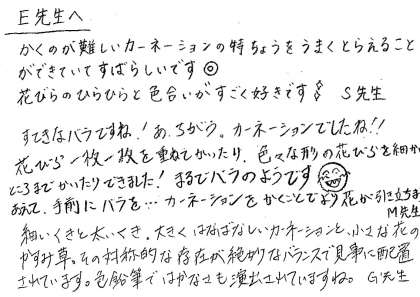 E先生へ
かくのが難しいカーネーションの特ちょうをうまくとらえること
ができていてすばらしいです◎
花びらのひらひらと色合いがすごく好きです S先生
すてきなバラですね! あ、ちがう。カーネーションでしたね!!
花びら一枚一枚を重ねてかいたり、色々な形の花びらを細か
ところまでかいたりできました! まるでバラのようです
あえて、手前にバラを… カーネーションをかくことでより花が引き立ちま
M先生
細いくきと太いくき。大きくはなばなしいカーネーションと、小さな花の
かすみ草。その対称的な存在が絶妙なバランスで見事に配置
されています。色鉛筆ではかなさも演出されていますね。 G先生